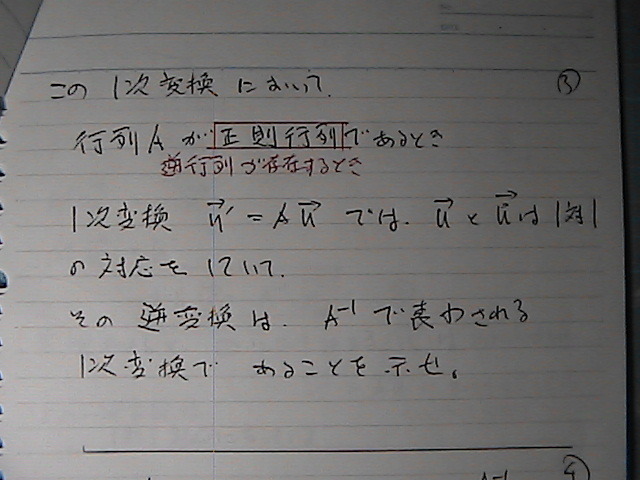 この1次変換において. ③
行列Aが正則行列であるとき
逆行列が存在するとき
1次変換 u⃗' = A u⃗ では. u⃗ と u⃗' は1対1
の対応をしていて.
その逆変換は. A⁻¹で表わされる
1次変換であることを示せ。
④
A⁻¹